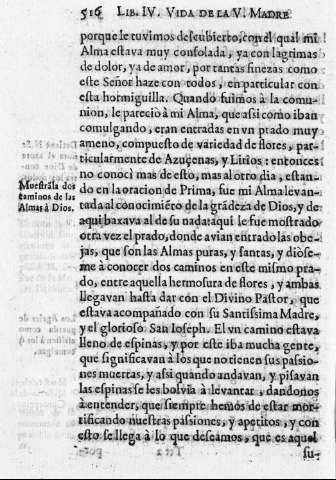 516 LIB. IV. VIDA DE LA V. MADRE
porque le tuvimos descubierto, con el qual mi
Alma estava muy consolada, ya con lagrimas
de dolor, ya de amor, por tantas finezas como
este Señor haze con todos, en particular con
esta hormiguilla. Quando fuimos à la comu-
nion, le pareciò à mi Alma, que assi como iban
comulgando, eran entradas en vn prado muy
ameno, compuesto de variedad de flores, par-
ticularmente de Azuçenas, y Lirios: entonces
no conocì mas de esto, mas al otro dia, estan-
do en la oracion de Prima, fue mi Alma levan-
Muestrala dos
caminos de las
Almas à Dios.
tada al conocimiẽto de la grãdeza de Dios, y de
aqui baxava al de su nada: aqui le fue mostrado
otra vez el prado, donde avian entrado las obe-
jas, que son las Almas puras, y santas, y diòse-
me à conocer dos caminos en este mismo pra-
do, entre aquella hermosura de flores, y ambas
llegavan hasta dar con el Divino Pastor, que
estava acompañado con su Santissima Madre,
y el glorioso San Ioseph. El vn camino estava
lleno de espinas, y por este iba mucha gente,
que significavan à los que no tienen sus passio-
nes muertas, y assi quando andavan, y pisavan
las espinas se les bolvia à levantar, dandonos
à entender, que siempre hemos de estar mor-
tificando nuestras passiones, y apetitos, y con
esto se llega à lo que deseamos, que es aquel
su-